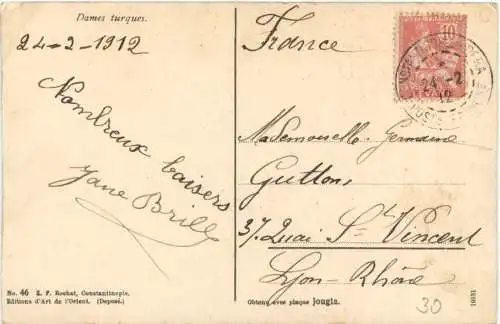 Dames turques.
24-2-1912
Nombreux baisers
Jane Brill
No. 46 E. F. Rochat, Constantinople.
Editions d'Art de l'Orient. (Deposé.)
France
10
24-2
12
Mademoiselle Germaine
Guttons
37 Quai St Vincent
Lyon-Rhône
Obtenu avec plaque jougla.
30